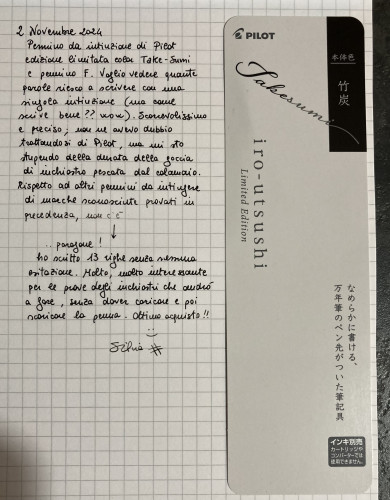 2 Novembre 2024
Pennino da intinzione di Pilot
edizione limitata color Take-Sumi
e pennino F. Voglio vedere quante
parole riesco a scrivere con una
singola intinzione (ma come
scrive bene?? wow). Scorrevolissimo
e preciso; non ne avevo dubbio
trattandosi di Pilot, ma mi sto
stupendo della durata della goccia
di inchiostro pescata dal calamaio.
Rispetto ad altri pennini da intingere
di marche sconosciute provati in
precedenza, non c'è
↓
.. paragone!
ho scritto 13 righe senza nessuna
esitazione. Molto, molto interessante
per le prove degli inchiostri che andrò
a fare, senza dover caricare e poi
scaricare la penna. Ottimo acquisto!!
:)
Silvia
PILOT
本体色
竹炭
Takesumi
iro-utsushi
Limited Edition
なめらかに書ける、
万年筆のペン先がついた筆記具
インキ別売
カートリッジや
コンバーターでは
使用できません。